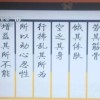 勞其筋骨
餓其體膚
空乏其身
行拂亂其所為
所以動心忍性
增益其所不能